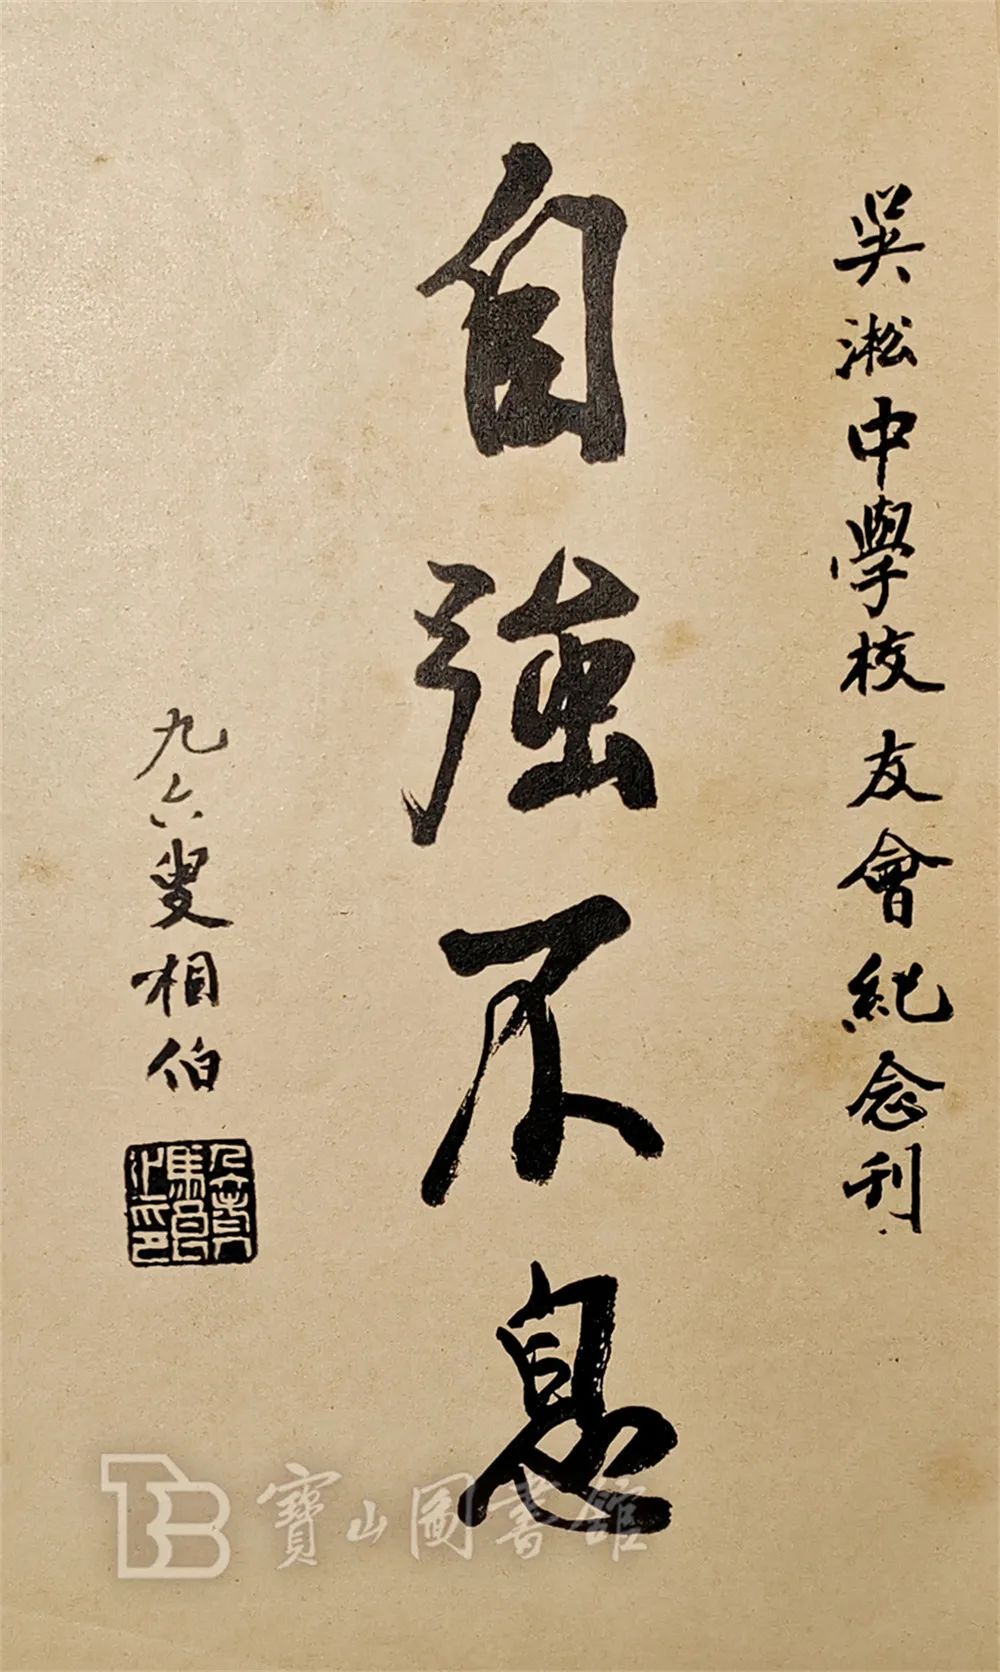 吳淞中學校友會紀念刊
自強不息
九六叟相伯
寶山圖書館